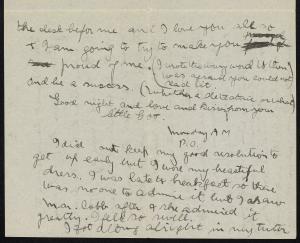 the desk before me and I love you all so
& I am going to try to make you
proud of me. (I wrote the wrong word & then
was afraid you could not
read it
and be a success. (whether a detective or
Good night and love and kisses from your
little
Monday AM
P.O.
I did not keep my good resolution to
get up early but I wore my beautiful
dress. I was late to breakfast so there
was no one to admire it but I saw
Mrs. Cobb after & she admired it
greatly. I fell so well.
I got along alright in my